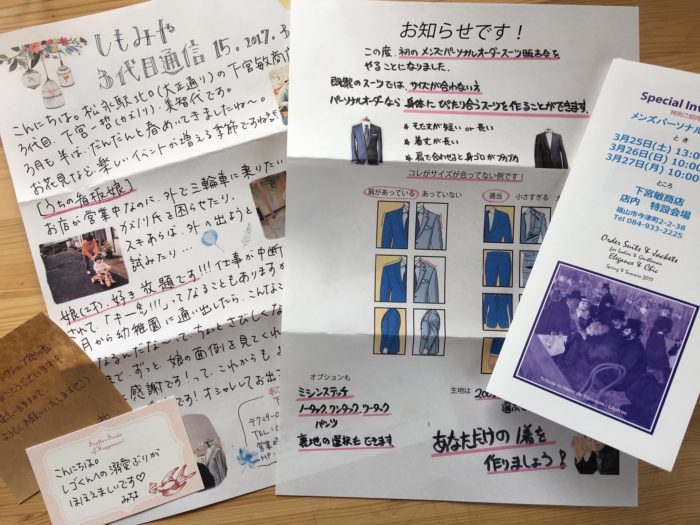 しもみや
3代目通信 15. 2017. 3
こんにちは。松永駅北口(大正通り)の下宮敏商店
3代目、下宮一哲(かずのり)、美智代です。
3月も半ば。だんだんと春めいてきましたね〜。
お花見など、楽しいイベントが増える季節ですね
[うちの看板娘]
お店が営業中なのに、外で三輪車に乗りたい
カズノリ氏を困らせたり、
スキあらば、外へ出ようと
試みたり…
娘(2才)、好き放題です!!!仕事が中断
されて、「キー!!!」ってなることもありますが
月から幼稚園に通い出したら、こんな
ちょっとさびしくな
ずっと、娘の面倒を見てくれ
感謝です!って、これからも
す! オシャレしてお出
〒729-0
TEL
営業
HP
お知らせです!
この度、初のメンズパーソナルオーダースーツ販売会を
やることになりました。
既製のスーツでは、サイズが合わない方
パーソナルオーダーなら 身体にぴたり合うスーツを作ることができます。
* そで丈が短い or 長い
* 着丈が長い
* 肩で合わせると身ゴロがブカブカ
コレがサイズが合ってない例です!
肩があっている あっていない
適当 小さすぎる
オプションも
ミシンステッチ
ノータック、ワンタック、ツータック
パンツ
裏地の選択もできます
生地は 200
あなただけの1着を
作りましょう!
Special In
特別ご招待
メンズパーソナ
とき
3月25日(土) 13:0
3月26日(日) 10:00
3月27日(月) 10:00
ところ
下宮敏商店
店内 特設会場
福山市今津町2-2-38
Tel 084-933-2225
Order Suits & Jackets
for Ladies & Gentlemen
Elegance & Chic
Spring & Summer 2017
Tribute to Henri de Toulouse-Lautrec
Scatter Seeds
of Happiness!
こんにちは。
しづくんへの溺愛ぶりが
ほほえましいです♡
みちよ